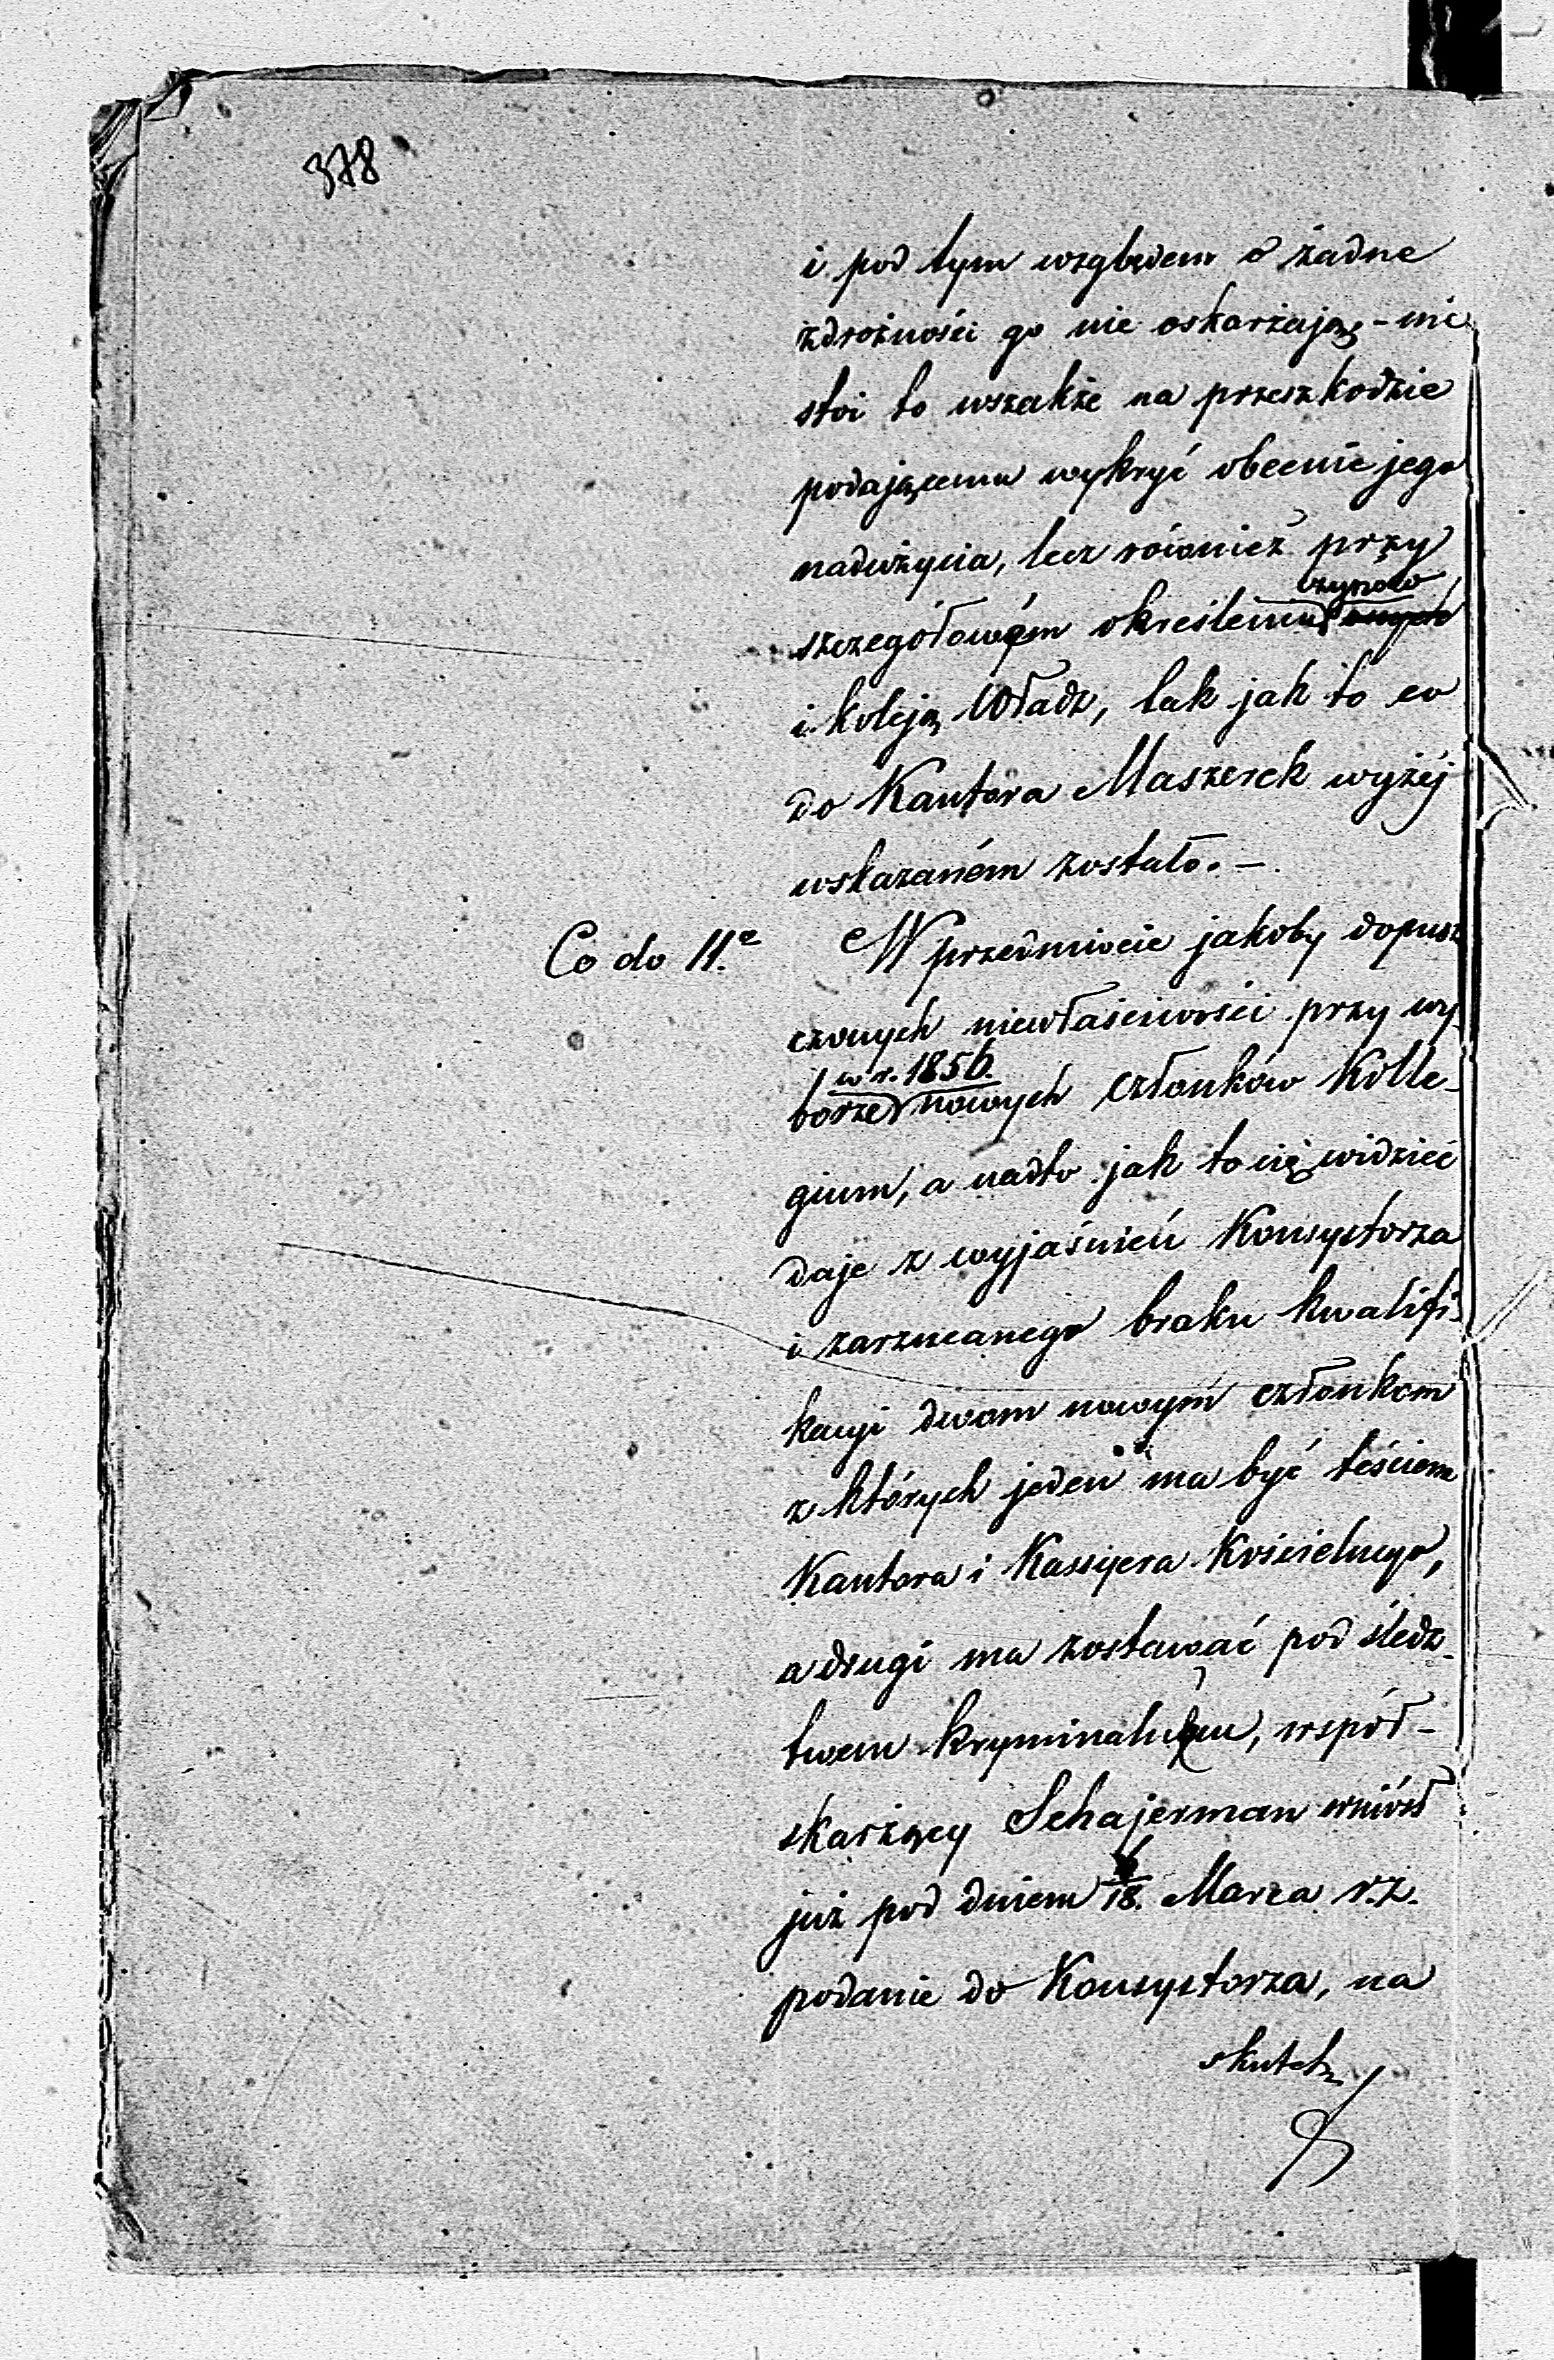 378
i pod tym względem o żadne
zdrożności go nie oskarżają, - nie
stoi to wszakże na przeszkodzie
podającemu wykryć obecnie jego
nadużycia, lecz również przy
czynów
szczegółowém określeniu onych
i koleją Władz, tak jak to co
do Kantora Maszerek wyżéj
wskazaném zostało. -
Co do 11.º W przedmiocie jakoby dopusz
czonych niewłaściwości przy wy-
w r. 1856.
borze nowych członków Kolle-
gium, a nadto jak to się widzieć
daje z wyjaśnień Konsystorza
i zarzucanego braku kwalifi-
kacyi dwom nowym członkom
z których jeden ma być teściem
Kantora i Kassyera Kościelnego,
a drugi ma zostawać pod śledz-
twem kryminalnem, współ-
skarżący Schajerman wniósł
już pod dniem 6/18. Marca r.z.
podanie do Konsystorza, na
skutek